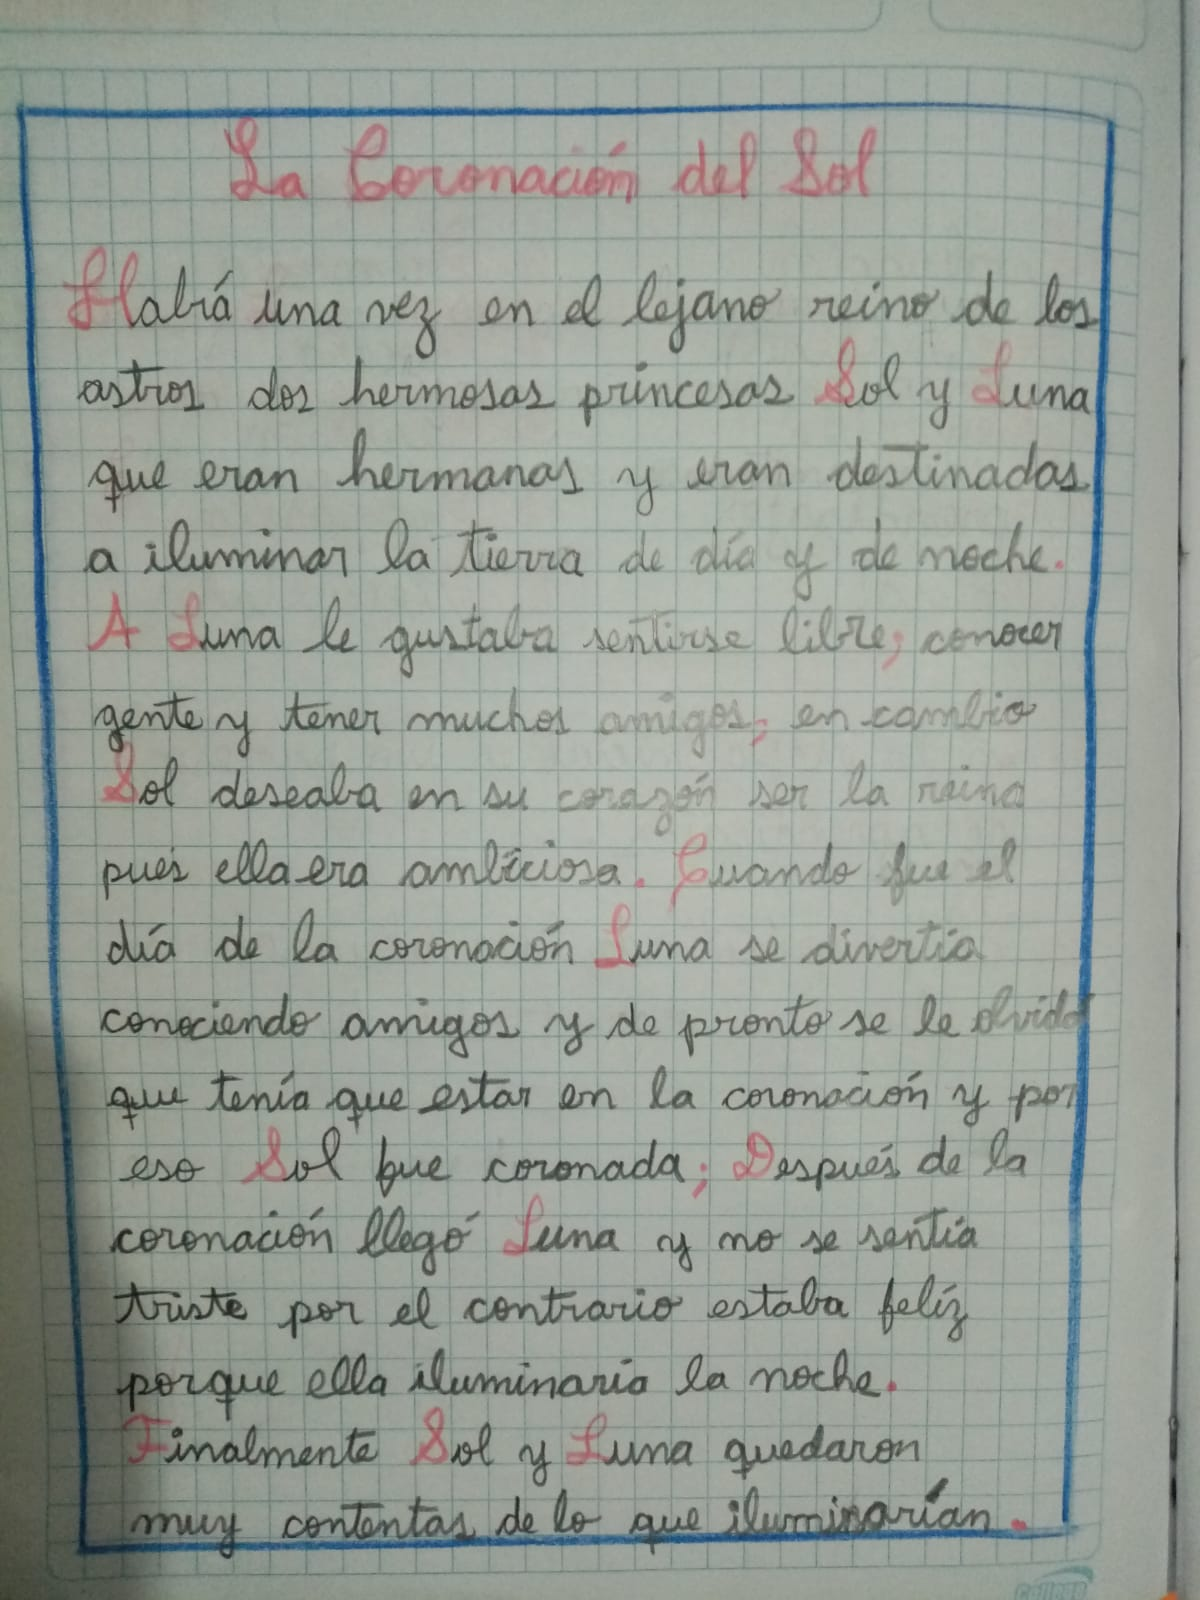 La Coronación del Sol
Habiá una vez en el lejano reino de los
astros dos hermosas princesas Sol y Luna
que eran hermanas y eran destinadas
a iluminar la tierra de día y de noche.
A Luna le gustaba sentirse libre, conocer
gente y tener muchos amigos, en cambio
Sol deseaba en su corazón ser la reina
pues ella era ambiciosa. Cuando fue el
día de la coronación Luna se divertía
conociendo amigos y de pronto se le olvidó
que tenía que estar en la coronación y por
eso Sol fue coronada; Después de la
coronación llegó Luna y no se sentía
triste por el contrario estaba felíz
porque ella iluminaría la noche.
Finalmente Sol y Luna quedaron
muy contentas de lo que iluminarían.
College